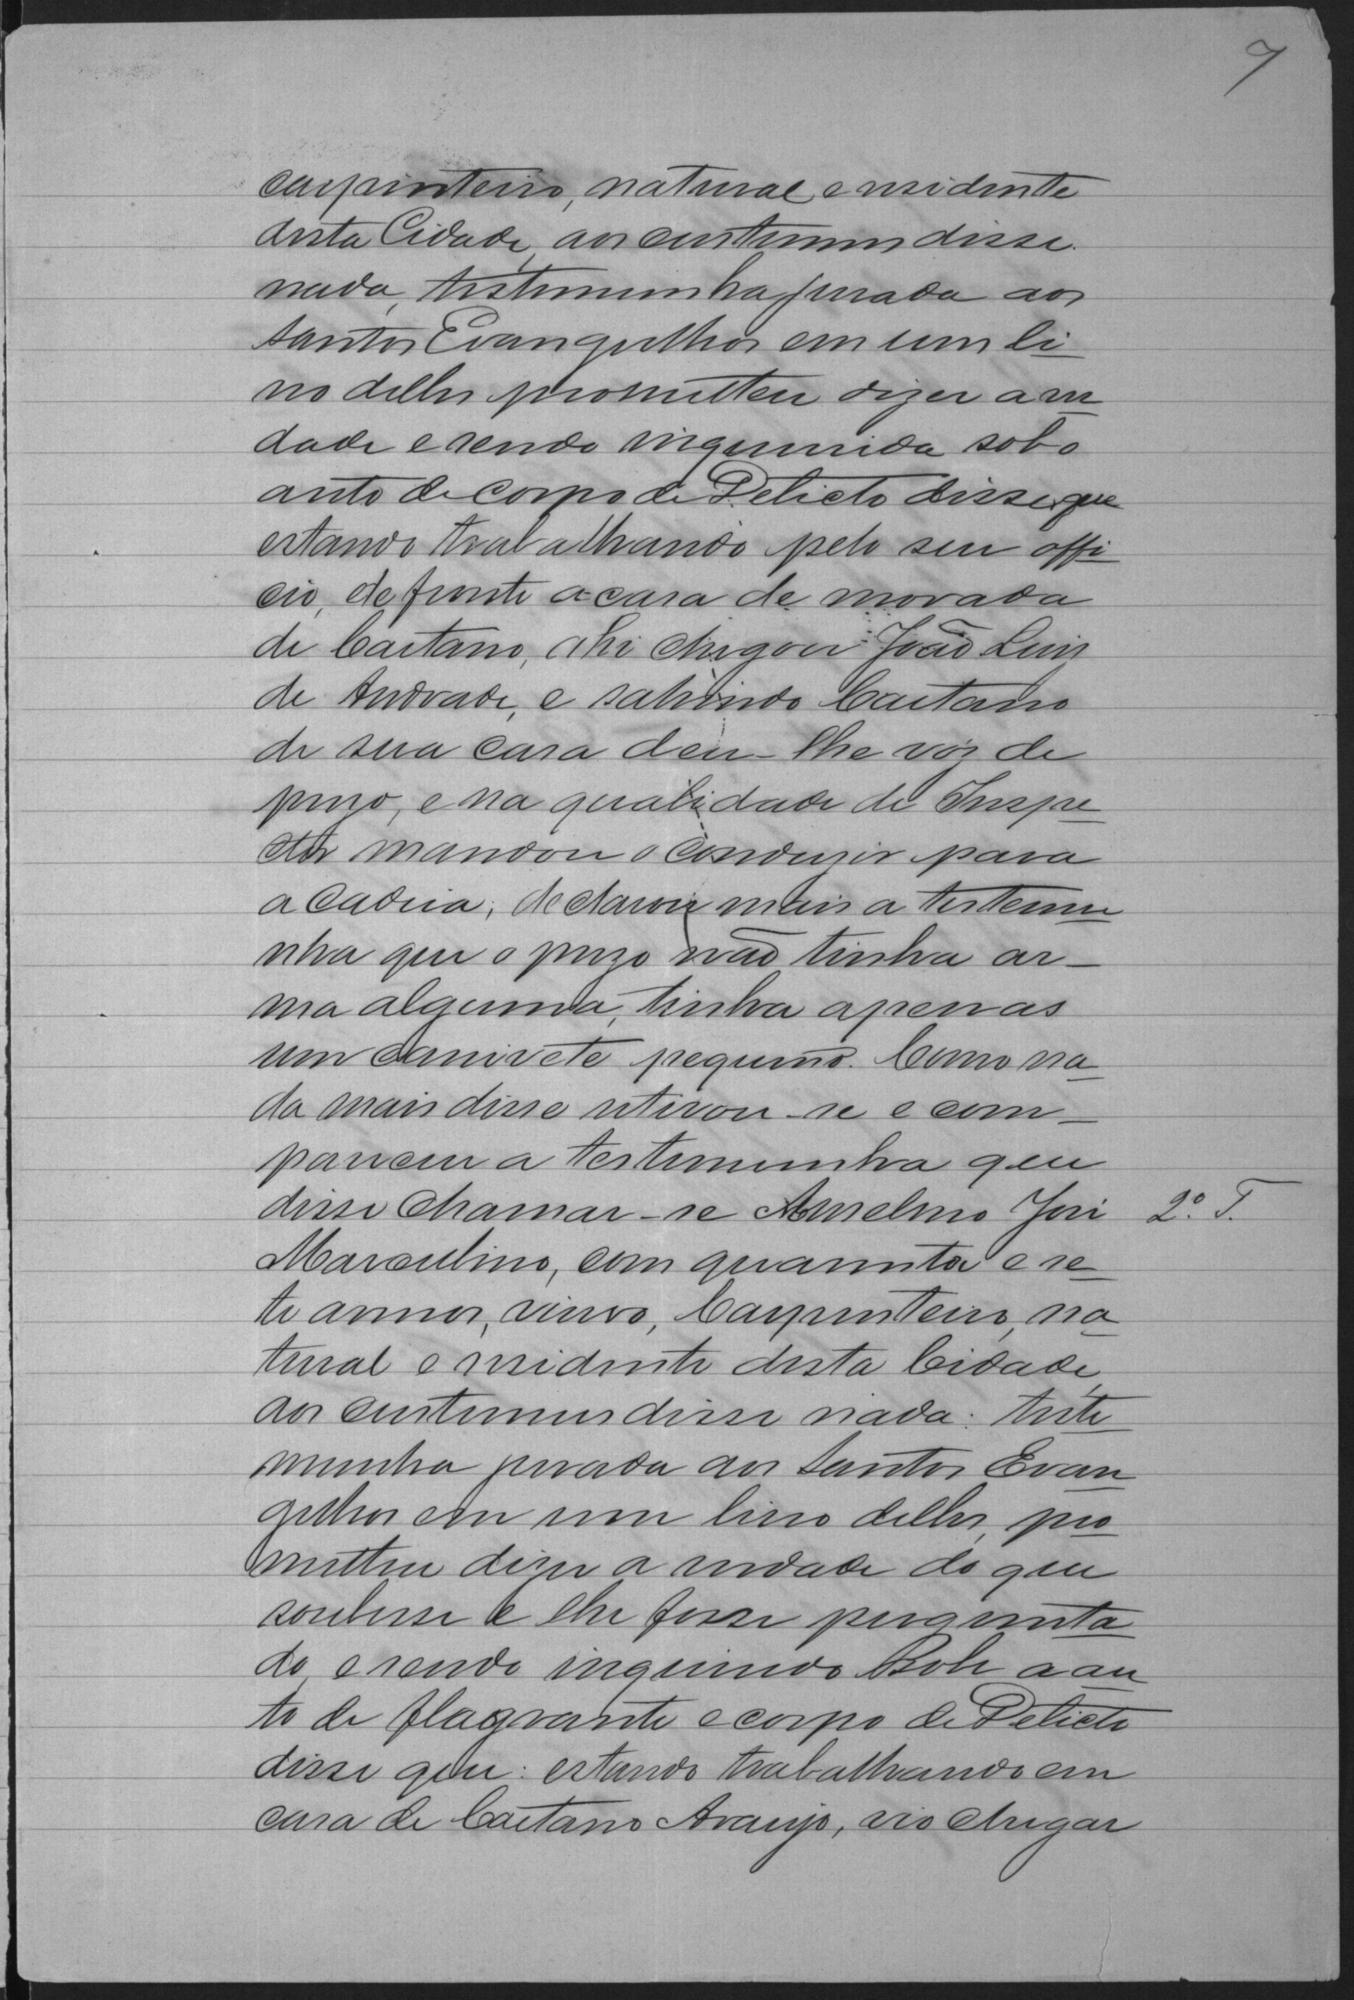 7
carpinteiro, natural e residente
desta Cidade, aos custumes disse
nada, testemunha jurada aos
Santos Evangelhos em um li_
vro delles prometteu dizer a ver
dade e sendo inquirida sob o
auto de corpo de Delicto disse que
estando trabalhando pelo seu offi
cio, defronte a casa de morada
de Caetano, ahi chegou João Luiz
de Andrade, e sahindo Caetano
de sua casa deu-lhe vóz de
prezo, e na qualidade de Inspe_
ctor mandou o conduzir para
a cadeia; declarou mais a testemu
nha que o prezo não tinha ar_
ma alguma, tinha apenas
um canivete pequeno. Como na_
da mais disse retirou-se e com_
pareceu a testemunha que
disse chamar-se Anselmo José
2º. T.
Marculino, com quarenta e se_
te annos, viuvo, Carpinteiro, na
tural e residente desta Cidade,
aos custumes disse nada: teste
munha jurada aos Santos Evan
gelhos em um livro delles, pro
metteu dizer a verdade do que
soubesse e lhe fosse pergunta
do, e sendo inquirido sob o au
to de flagrante e corpo de Delicto
disse que: estando trabalhando em
casa de Caetano Araujo, vio chegar